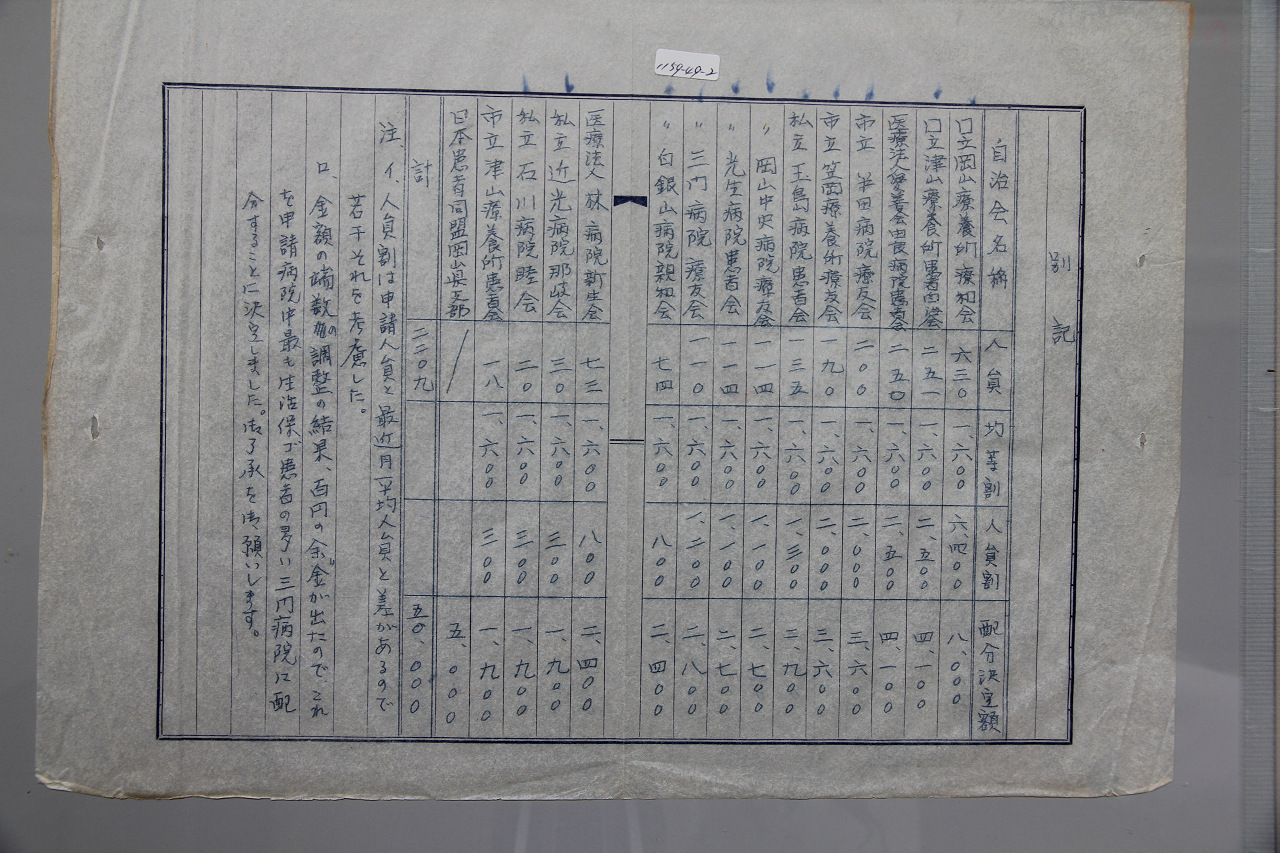 1159-49-2
別記
自治会名称 人員 均等割 人員割 配分決定額
国立岡山療養所療和会 六三〇 一、六〇〇 六、四〇〇 八、〇〇〇
国立津山療養所患者自治会 二五一 一、六〇〇 二、五〇〇 四、一〇〇
医療法人愛善会由良病院患者会 二五〇 一、六〇〇 二、五〇〇 四、一〇〇
市立 半田病院療友会 二〇〇 一、六〇〇 二、〇〇〇 三、六〇〇
市立 笠岡療養所療友会 一九〇 一、六〇〇 二、〇〇〇 三、六〇〇
私立 玉島病院患者会 一三五 一、六〇〇 一、三〇〇 二、九〇〇
〃 岡山中央病院療友会 一一四 一、六〇〇 一、一〇〇 二、七〇〇
〃 光生病院患者会 一一四 一、六〇〇 一、一〇〇 二、七〇〇
〃 三門病院療友会 一一〇 一、六〇〇 一、二〇〇 二、八〇〇
〃 白銀山病院親和会 七四 一、六〇〇 八〇〇 二、四〇〇
医療法人 林病院新生会 七三 一、六〇〇 八〇〇 二、四〇〇
私立 近光病院那岐会 三〇 一、六〇〇 三〇〇 一、九〇〇
私立 石川病院睦会 二〇 一、六〇〇 三〇〇 一、九〇〇
市立津山療養所患者会 一八 一、六〇〇 三〇〇 一、九〇〇
日本患者同盟岡山県支部 五、〇〇〇
計 二二〇九 五〇、〇〇〇
注、イ、人員割は申請人員と最近月平均人員と差があるので
若干それを考慮した。
ロ、金額の端数の調整の結果、百円の余金が出たので、これ
を申請病院中最も生活保ゴ患者の多い三門病院に配
分することに決定しました。御了承を御願いします。